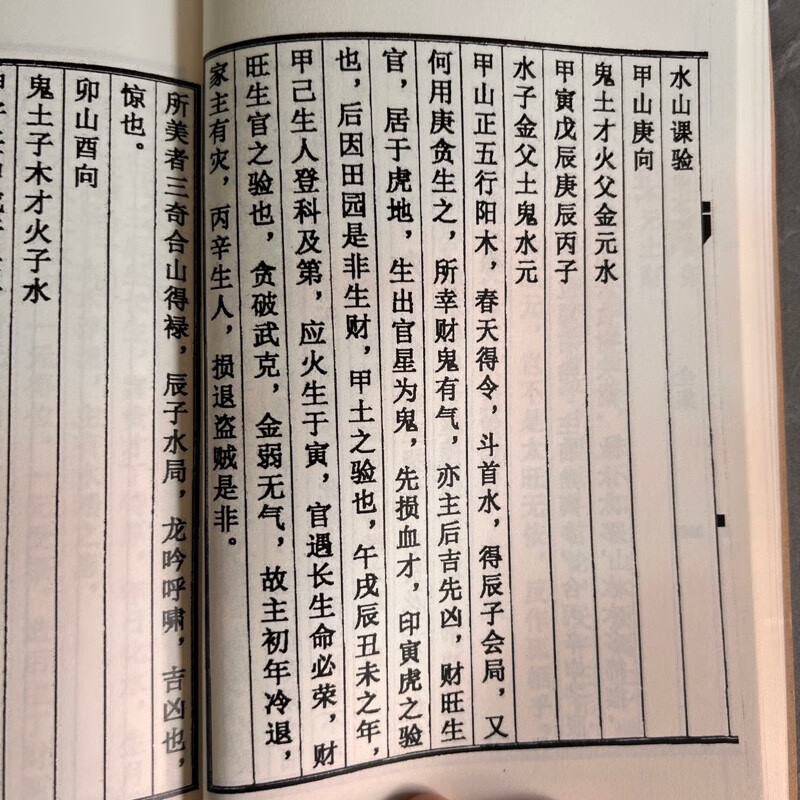 水山课验
甲山庚向
鬼土才火父金元水
甲寅戊辰庚辰丙子
水子金父土鬼水元
甲山正五行阳木，春天得令，斗首水，得辰子会局，又
何用庚贪生之，所幸财鬼有气，亦主后吉先凶，财旺生
官，居于虎地，生出官星为鬼，先损血才，印寅虎之验
也，后因田园是非生财，甲土之验也，午戌辰丑未之年，
甲己生人登科及第，应火生于寅，官遇长生命必荣，财
旺生官之验也，贪破武克，金弱无气，故主初年冷退，
家主有灾，丙辛生人，损退盗贼是非。
所美者三奇合山得禄，辰子水局，龙吟呼啸，吉凶也，
惊也。
卯山酉向
鬼土子木才火子水